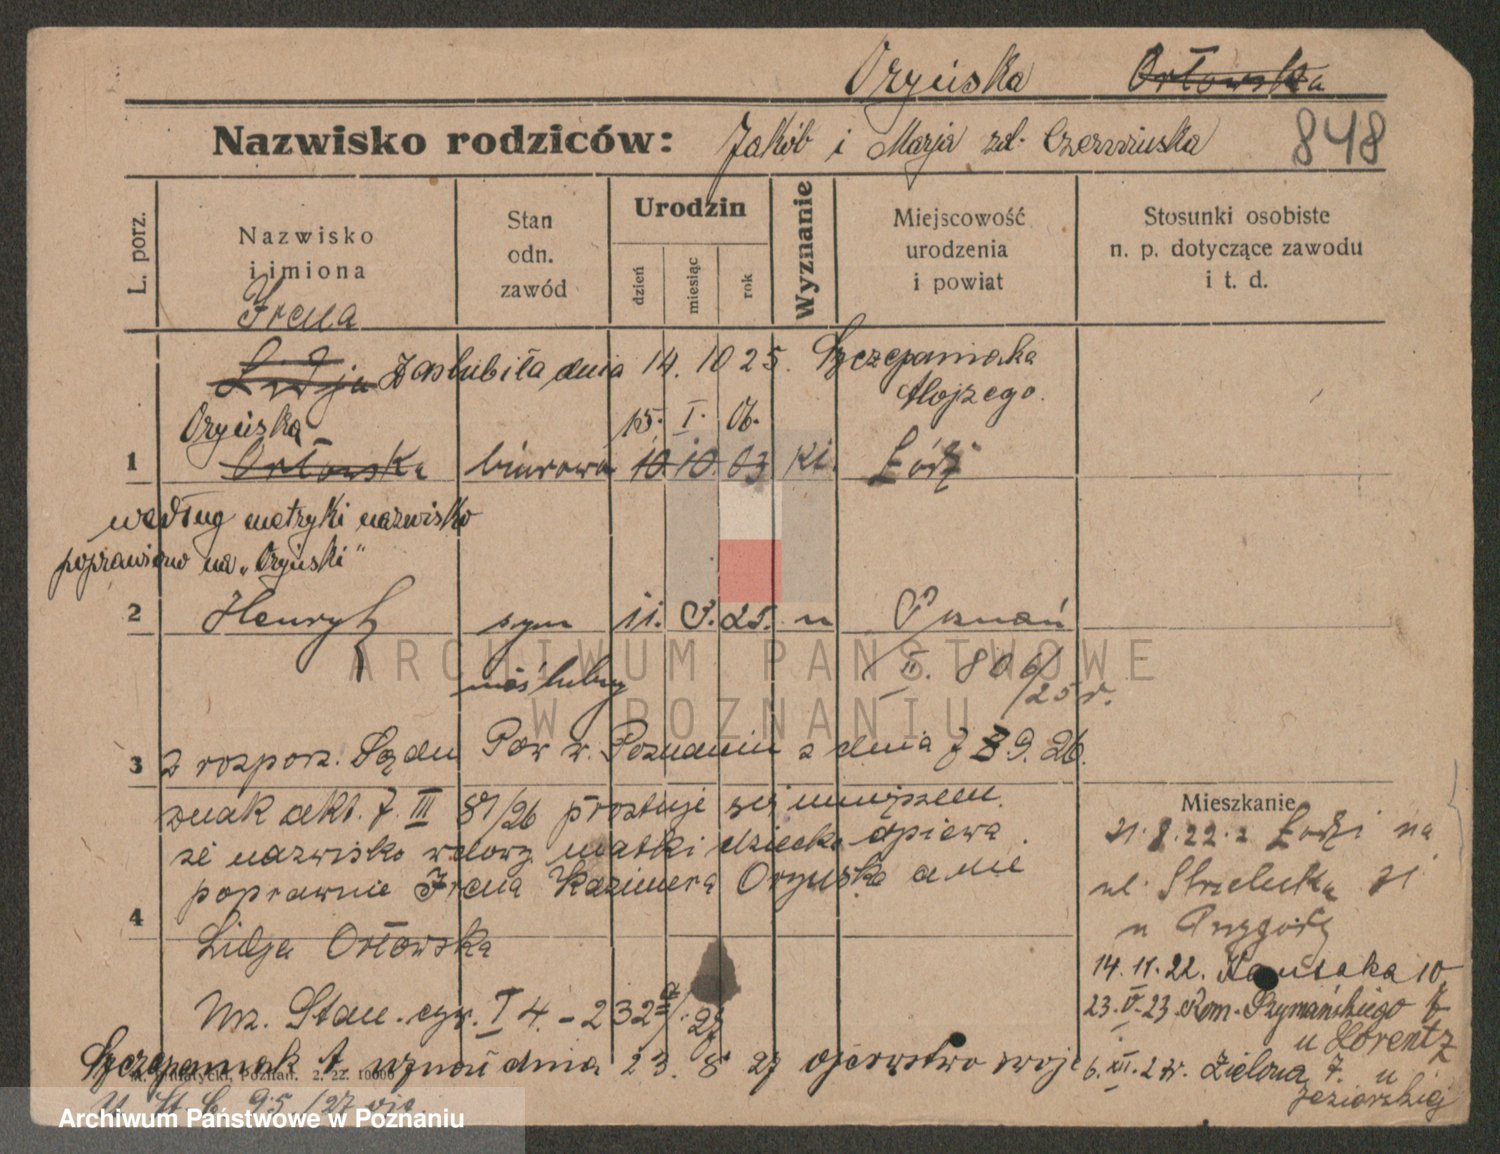 Oryńska Orłowska
Nazwisko rodziców: Jakób i Marja zd. Czerwińska 848
L. porz.
Nazwisko
i imiona
Stan
odn.
zawód
Urodzin
dzień
miesiąc
rok
Wyznanie
Miejscowość
urodzenia
i powiat
Stosunki osobiste
n. p. dotyczące zawodu
i t. d.
Irena
Lidja Zaślubiła dnia 14. 10 25. Szczepaniaka
Alojzego.
Oryńska 15. I. 06.
1 Orłowska biurowa 10 10. 03 kt. Łódź
według metryki nazwisko
poprawiono na „Oryński"
2 Henryk syn 11. 25. u Poznań
nieślubny II. 806/25 r.
3 z rozporz. Sądu Pow w. Poznaniu z dnia 7 9. 26.
znak akt. 7. III 87/26 prostuje się
że nazwisko matki dziecka opiewa
poprawnie Irena Kazimiera Oryńska a nie
4 Lidja Orłowska
Urz. Stan. cyw. I 4. - 232
Szczepaniak A. uznał dnia 23. 8 27 ojcostwo swoje
2. 22. 10000
95/27
Mieszkanie
21. 8. 22. z Łodzi na
ul. Strzelecką 31
u Przygody
14. 11. 22. 10
23. V. 23. Rom. Szymańskiego
u Lorentz
Zielona 7. u
Jeziorskiej
ARCHIWUM PAŃSTWOWE
W POZNANIU
Archiwum Państwowe w Poznaniu